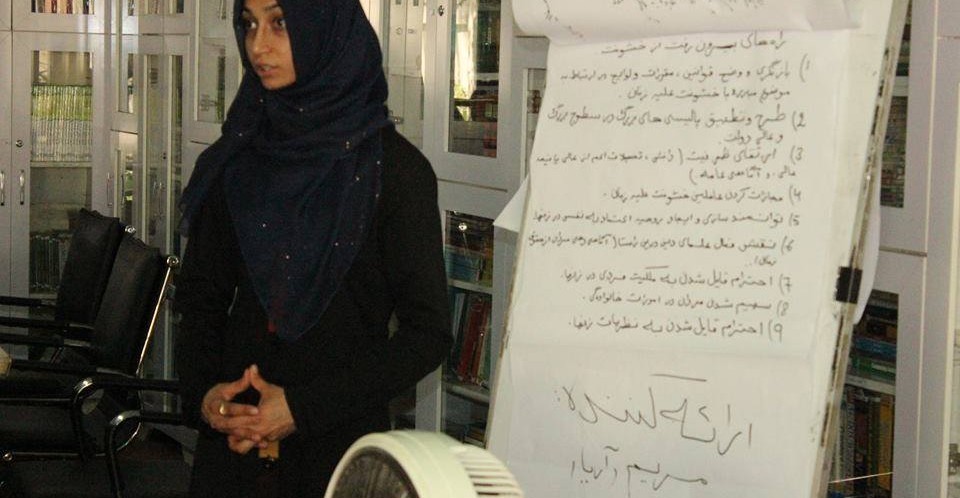 راه‌های بیرون رفت از خشونت
1) بازنگری و وضع قوانین، مقررات و لوایح در ارتباط به
موضوع مبارزه با خشونت علیه زنان.
2) طرح و تطبیق پالیسی های بزرگ در سطوح بزرگ
و عالی دولت.
3) ارتقای ظرفیت (
عالی، و آگاهی عامه.)
4) مجازات کردن عاملین خشونت علیه زنان.
5) توانمند سازی و ایجاد روحیه اعتماد به نفس در زنها.
6) نقش فعال علمای دین درین راستا (آگاهی دهی مردان از حقوق
زنان).
7) احترام قایل شدن به ملکیت فردی در زنها.
8) سهیم شدن مردان در امورات خانوادگی.
9) احترام قایل شدن به نظریات زنها.
ارائه کننده:
مریم و آریا